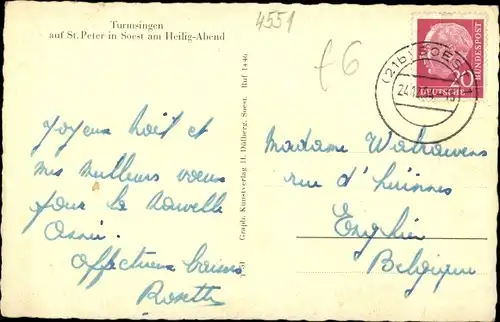 Turmsingen
auf St. Peter in Soest am Heilig-Abend
4551
f6
Joyeux Noël et
mes meilleurs vœux
pour la nouvelle
Année.
Affectueux baisers
Rosette
Graph. Kunstverlag H. Dülberg, Soest. Ruf 1846
(21b) SOEST
DEUTSCHE
BUNDESPOST
20
Madame
rue d'
Enghien
Belgique